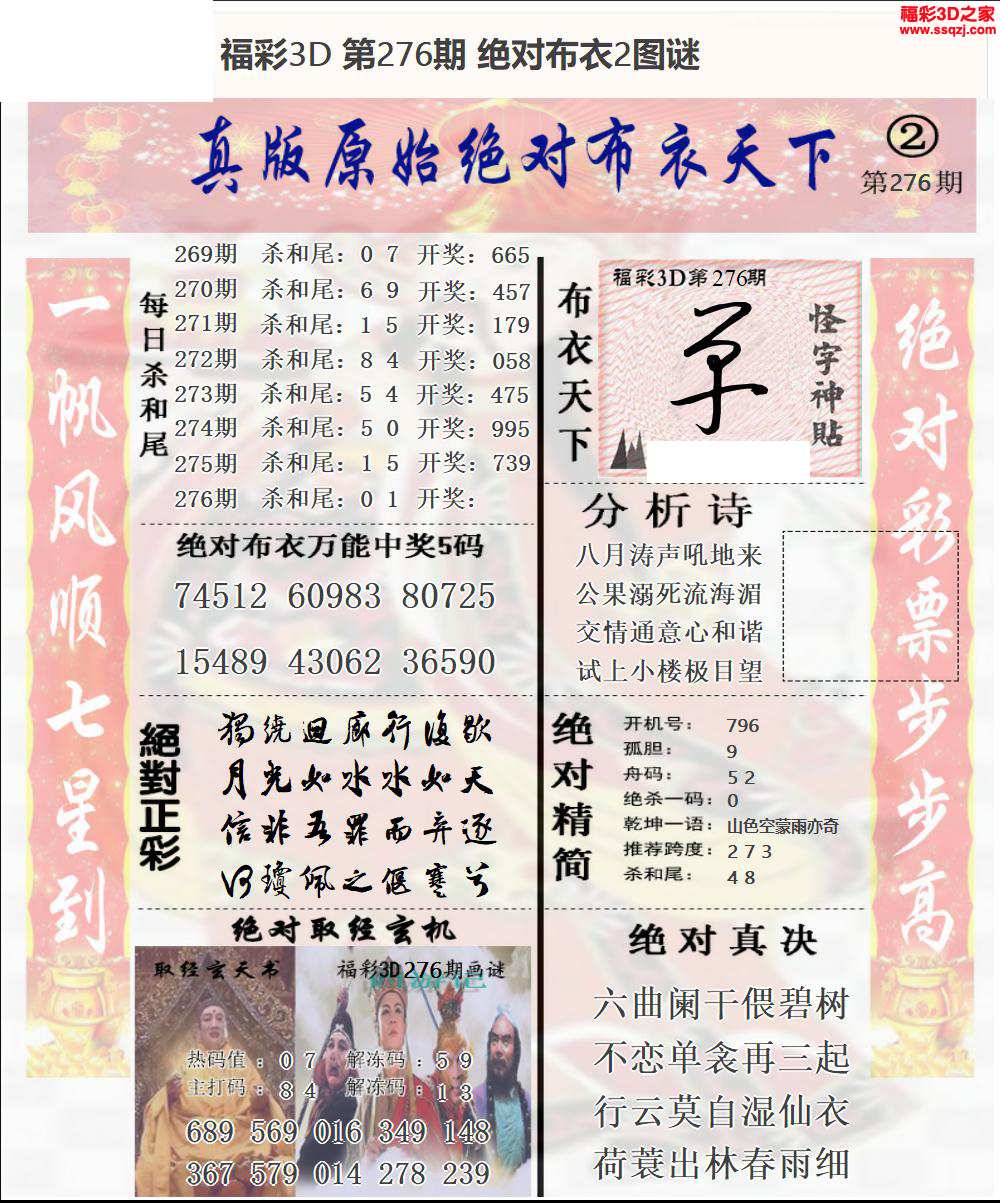 福彩3D之家
www.ssqzj.com
福彩3D 第276期 绝对布衣2图谜
真版原始绝对布衣天下
②
第276期
一帆风顺七星到
每日杀和尾
269期 杀和尾：0 7 开奖：665
270期 杀和尾：6 9 开奖：457
271期 杀和尾：1 5 开奖：179
272期 杀和尾：8 4 开奖：058
273期 杀和尾：5 4 开奖：475
274期 杀和尾：5 0 开奖：995
275期 杀和尾：1 5 开奖：739
276期 杀和尾：0 1 开奖：
绝对布衣万能中奖5码
74512 60983 80725
15489 43062 36590
絕對正彩
獨繞迴廊行復歇
月光如水水如天
信非吾罪而弃逐
何瓊佩之偃蹇兮
绝对取经玄机
取经玄天书
福彩3D276期画谜
热码值：0 7 解冻码：5 9
主打码：8 4 解冻码：1 3
689 569 016 349 148
367 579 014 278 239
布衣天下
福彩3D第276期
怪字神貼
分析诗
八月涛声吼地来
公果溺死流海湄
交情通意心和谐
试上小楼极目望
绝对精简
开机号：796
孤胆：9
舟码：5 2
绝杀一码：0
乾坤一语：山色空蒙雨亦奇
推荐跨度：2 7 3
杀和尾：4 8
绝对真决
六曲阑干偎碧树
不恋单衾再三起
行云莫自湿仙衣
荷蓑出林春雨细
绝对彩票步步高